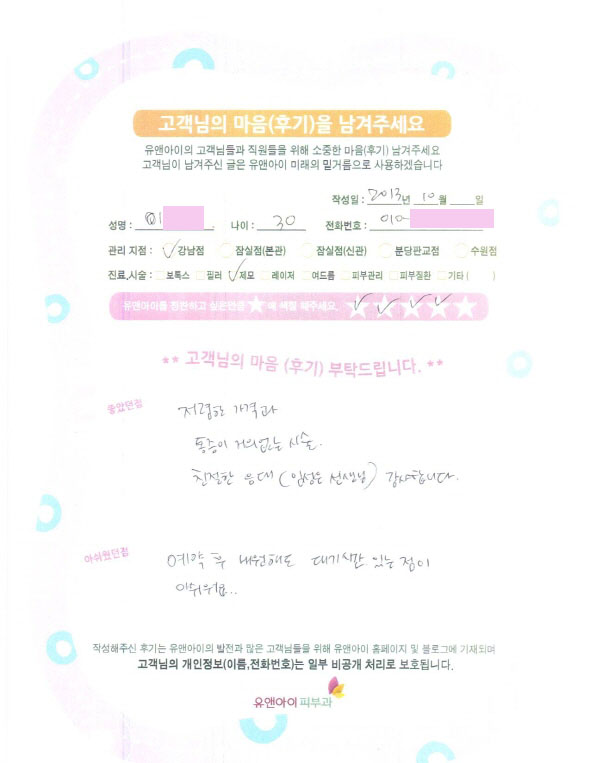 고객님의 마음(후기)을 남겨주세요
유앤아이의 고객님들과 직원들을 위해 소중한 마음(후기) 남겨주세요
고객님이 남겨주신 글은 유앤아이 미래의 밑거름으로 사용하겠습니다
작성일 : 2013년 10월 일
성명 : 이 나이 : 30 전화번호 : 010-
관리 지점 : 강남점 잠실점(본관) 잠실점(신관) 분당판교점 수원점
진료.시술 : 보톡스 필러 제모 레이저 여드름 피부관리 피부질환 기타 ( )
유앤아이를 추천하고 싶은만큼 ★에 색칠 해주세요. ★★★★★
** 고객님의 마음 (후기) 부탁드립니다. **
좋았던점
저렴한 가격과
통증이 거의없는 시술.
친절한 응대 (임성은 선생님) 감사합니다.
아쉬웠던점
예약 후 내원해도 대기시간 있는 점이
아쉬워요..
작성해주신 후기는 유앤아이의 발전과 많은 고객님들을 위해 유앤아이 홈페이지 및 블로그에 기재되며
고객님의 개인정보(이름,전화번호)는 일부 비공개 처리로 보호됩니다.
유앤아이 피부과